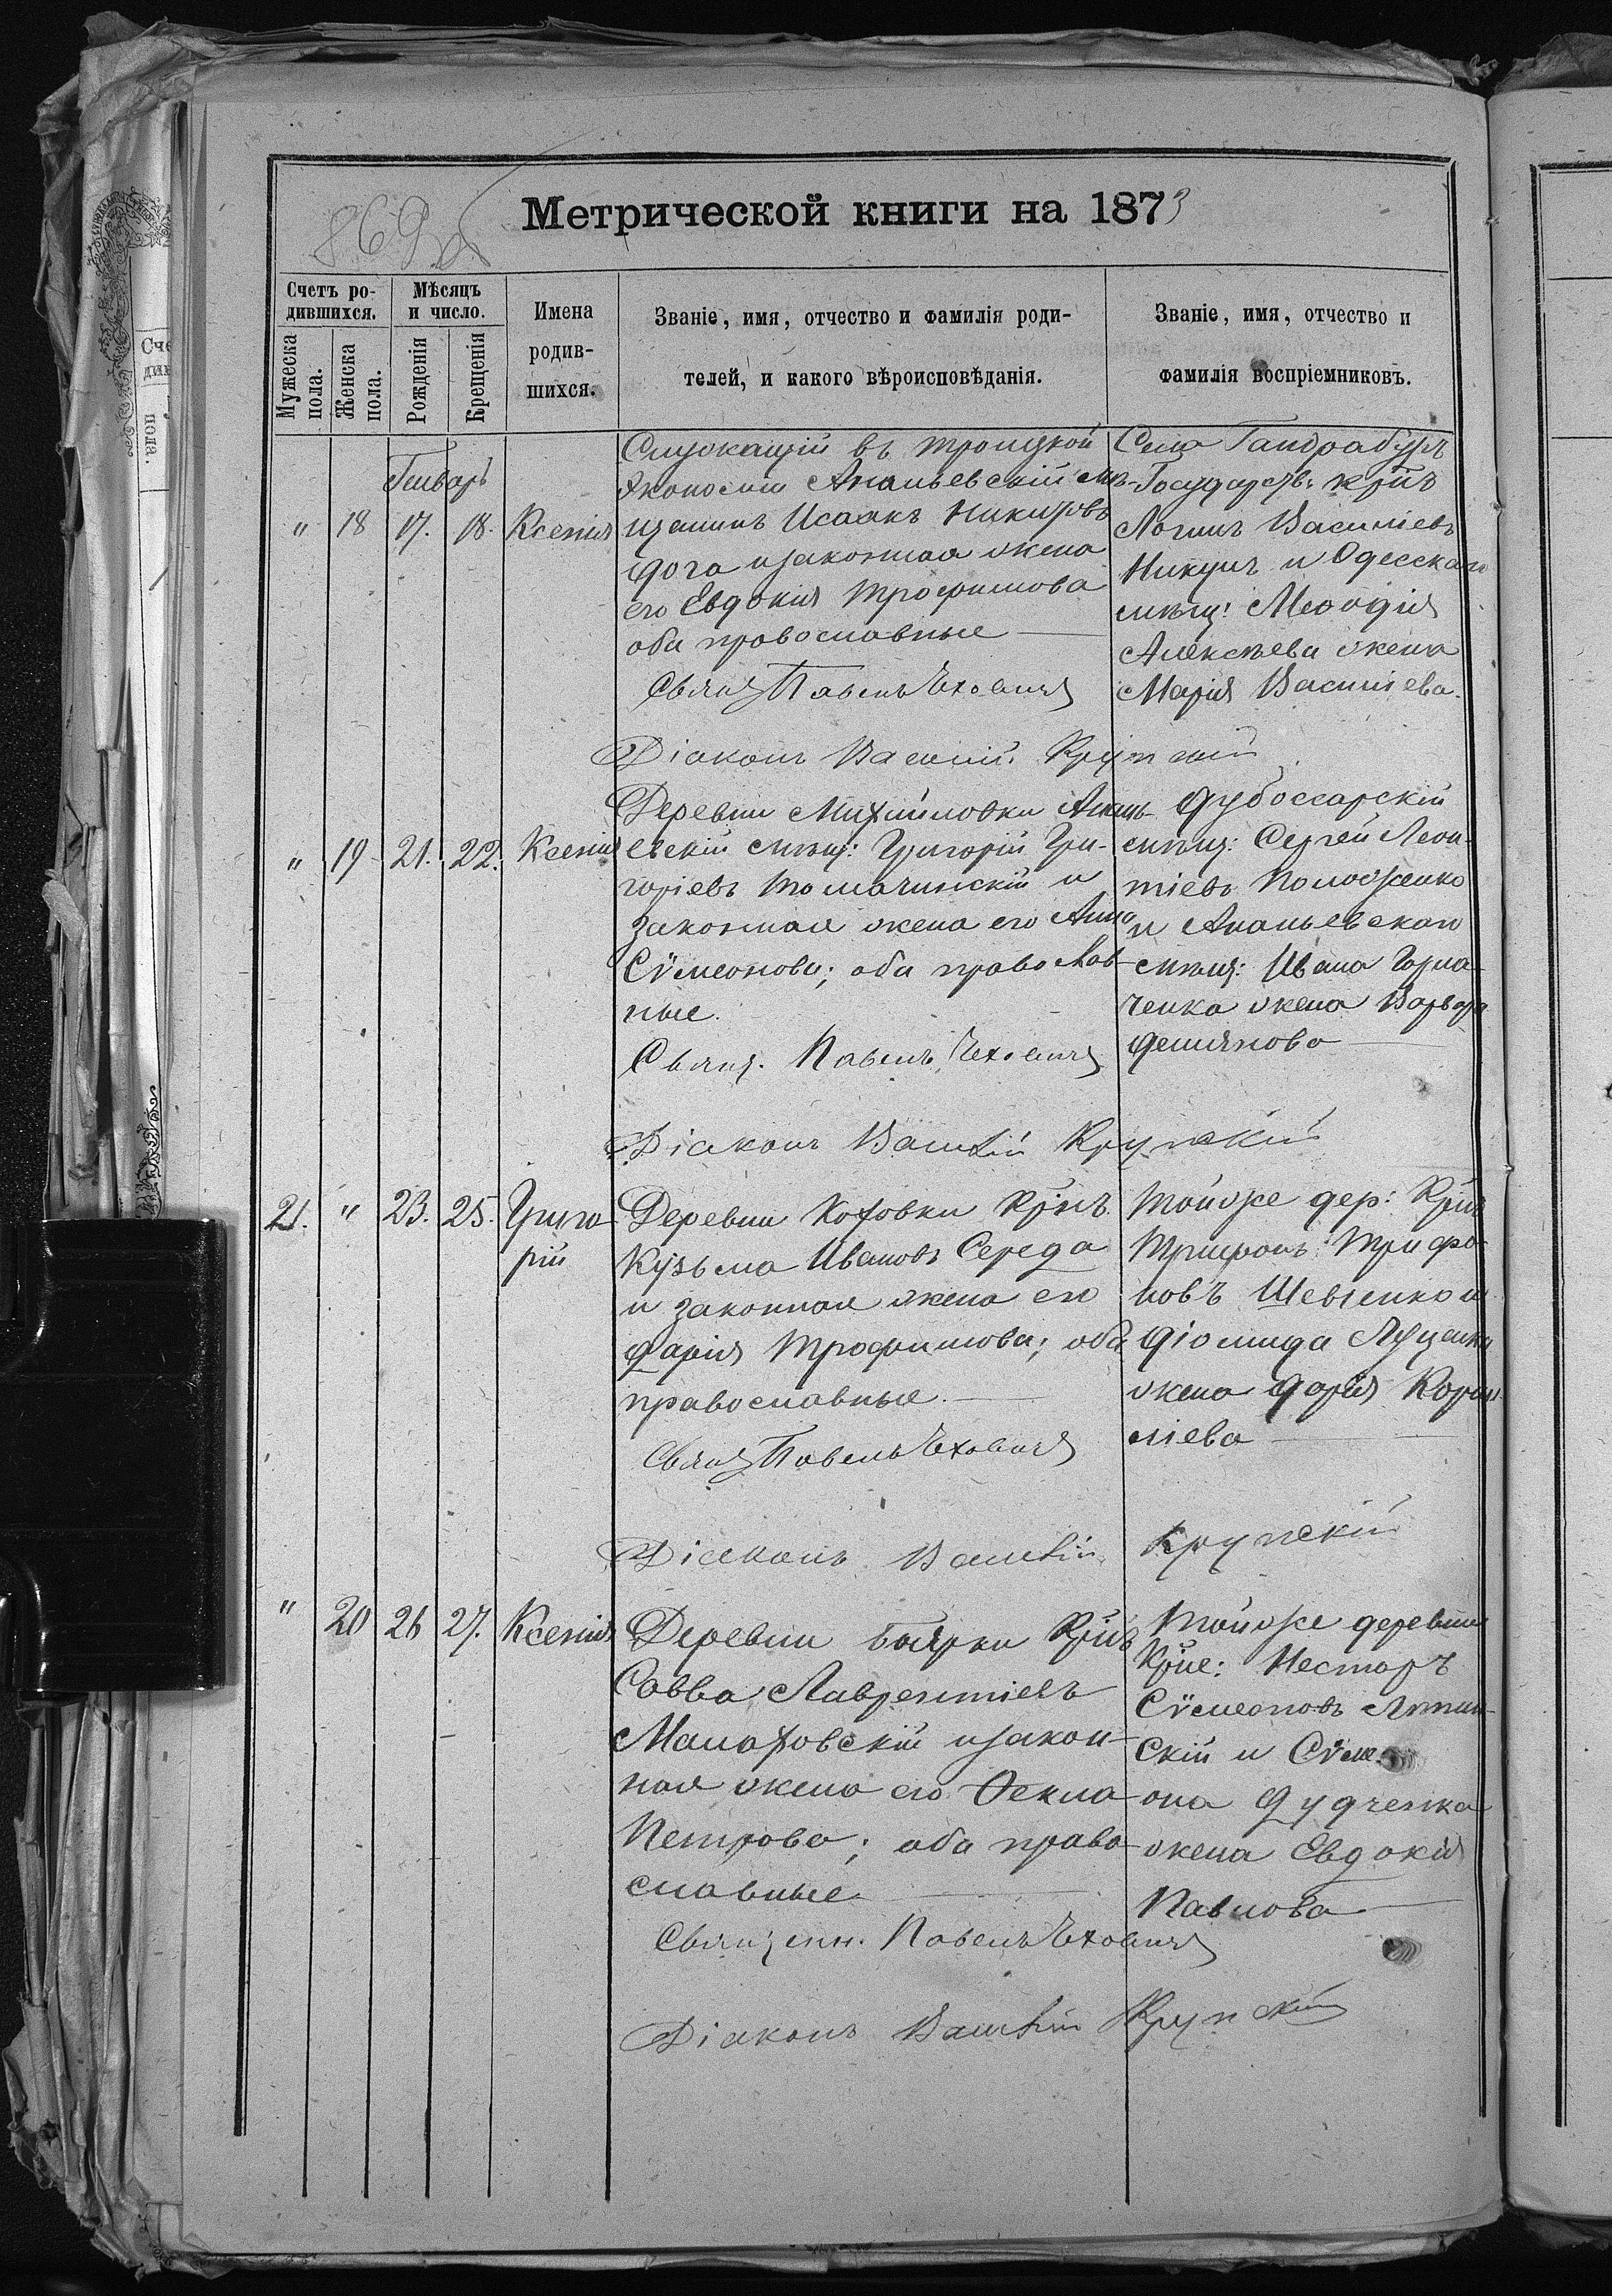 Метрической книги на 1873
869 об
Счетъ ро-
дившихся.
Мѣсяцъ
и число.
Имена
родив-
шихся.
Званіе, имя, отчество и фамилія роди-
телей, и какого вѣроисповѣданія.
Званіе, имя, отчество и
фамилія воспріемниковъ.
Мужеска
пола.
Женска
пола.
Рожденія
Крещенія
Генварь
" 18 17. 18. Ксенія
Служащій въ Троицкой
Экономіи Ананьевскій мѣ-
щанинъ Исаакъ Никитовъ
и законная жена
его Евдокія Трофимова
оба православные
Свящ Павелъ Чеховичъ
Села Гандрабуръ
Государств: крнъ
Логинъ Василіевъ
и Одесскаго
мѣщ: Меѳодія
Алексѣева жена
Марія Василіева.
Діаконъ Василій Крупскій
" 19 21. 22. Ксенія
Деревни Михайловки Анань-
евскій мѣщ: Григорій Гри-
горіевъ Томачинскій и
законная жена его Анна
Сѵмеонова; оба православ-
ные.
Свящ. Павелъ Чеховичъ
Дубоссарскій
мѣщ: Сергей Леон-
тіевъ
и Ананьевскаго
мѣщ: Ивана Горпа-
ченка жена Варвара
Демянова
Діаконъ Василій Крупскій
21. " 23. 25. Григо-
рій
Деревни Котовки Крнъ
Кузьма Ивановъ Середа
и законная жена его
Дарія Трофимова; оба
православные.
Свящ Павелъ Чеховичъ
Тойже дер: Крнъ
Трифонъ Трифо-
новъ Шевченко и
Діомида Луценка
жена Дарія Корни-
ліева
Діаконъ Василій Крупскій
" 20 26 27. Ксенія
Деревни Боярки Крнъ
Савва Лаврентіевъ
Малаховскій и закон-
ная жена его Ѳекла
Петрова; оба право-
славные.
Священн. Павелъ Чеховичъ
Тойже деревни
Крне: Несторъ
Сѵмеоновъ
скій и Сѵме-
она Дудченка
жена Евдокія
Павлова
Діаконъ Василій Крупскій